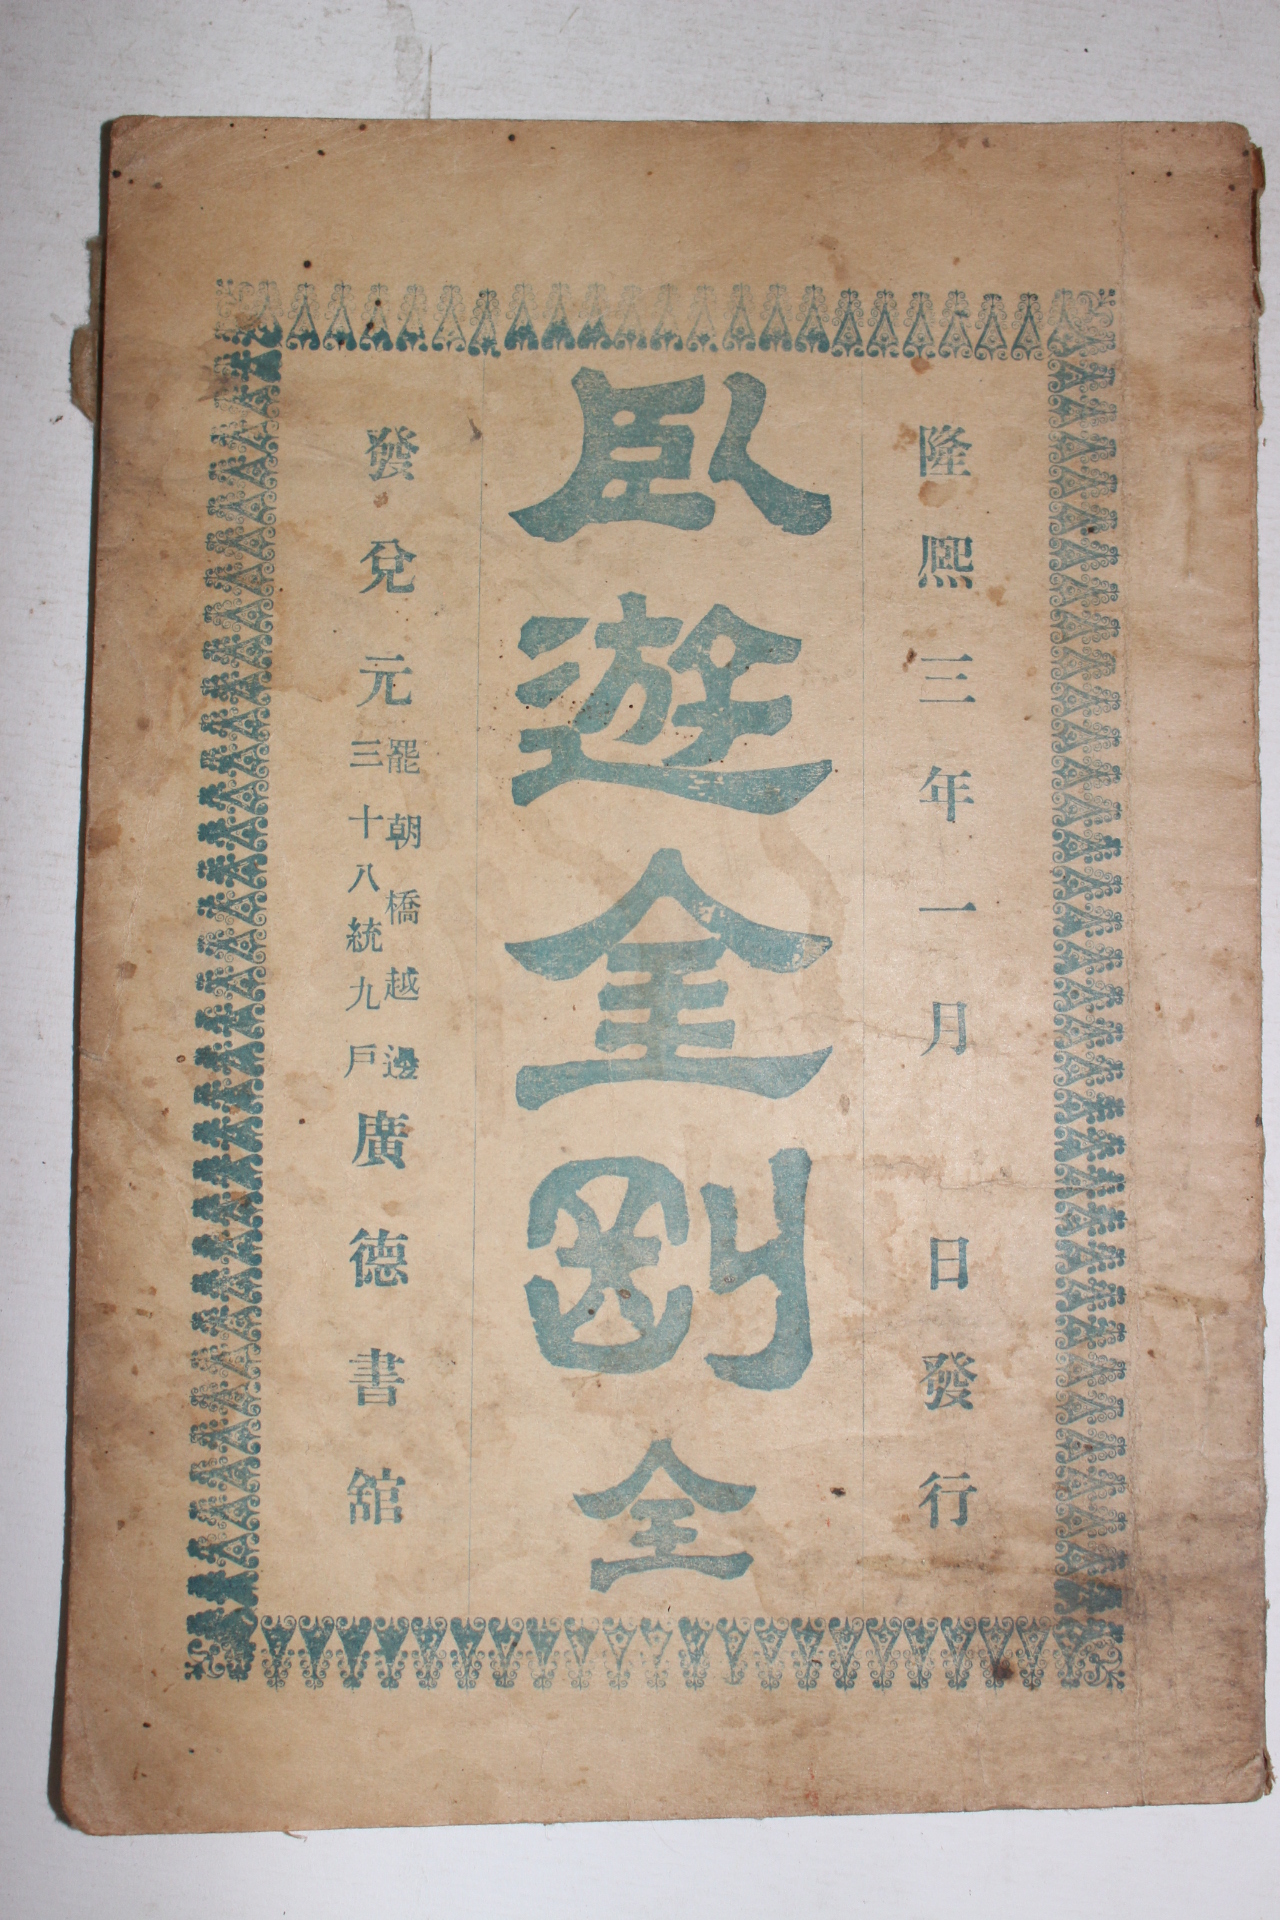 隆熙三年一月　日發行
臥遊金剛 全
發兌元 罷朝橋越邊
三十八統九戶
廣德書舘